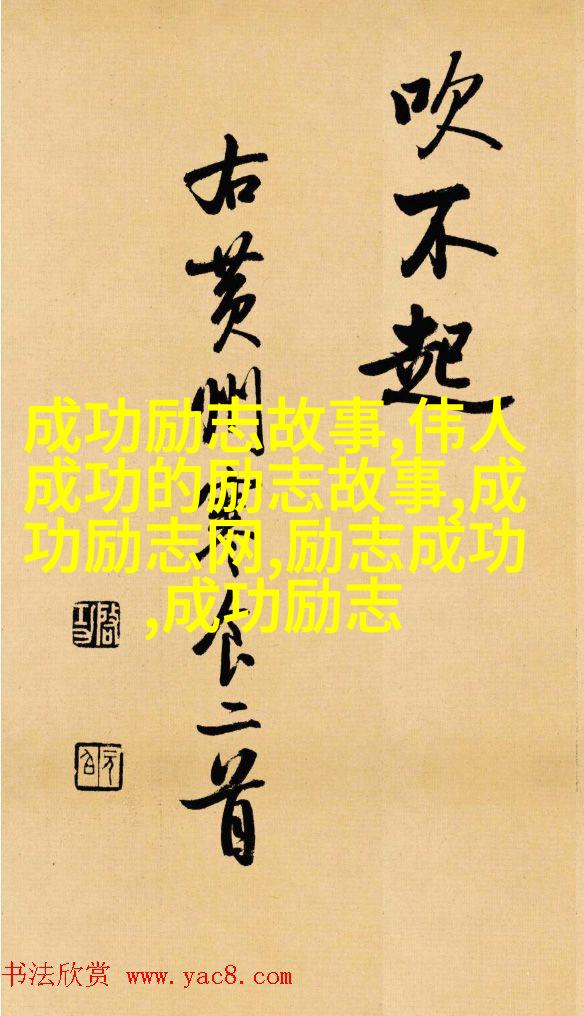 吹不起
右黄州寒食二首
启功
元白
成功励志故事,伟人
成功的励志故事,成
功励志网,励志成功
,成功励志
书法欣赏 www.yac8.com